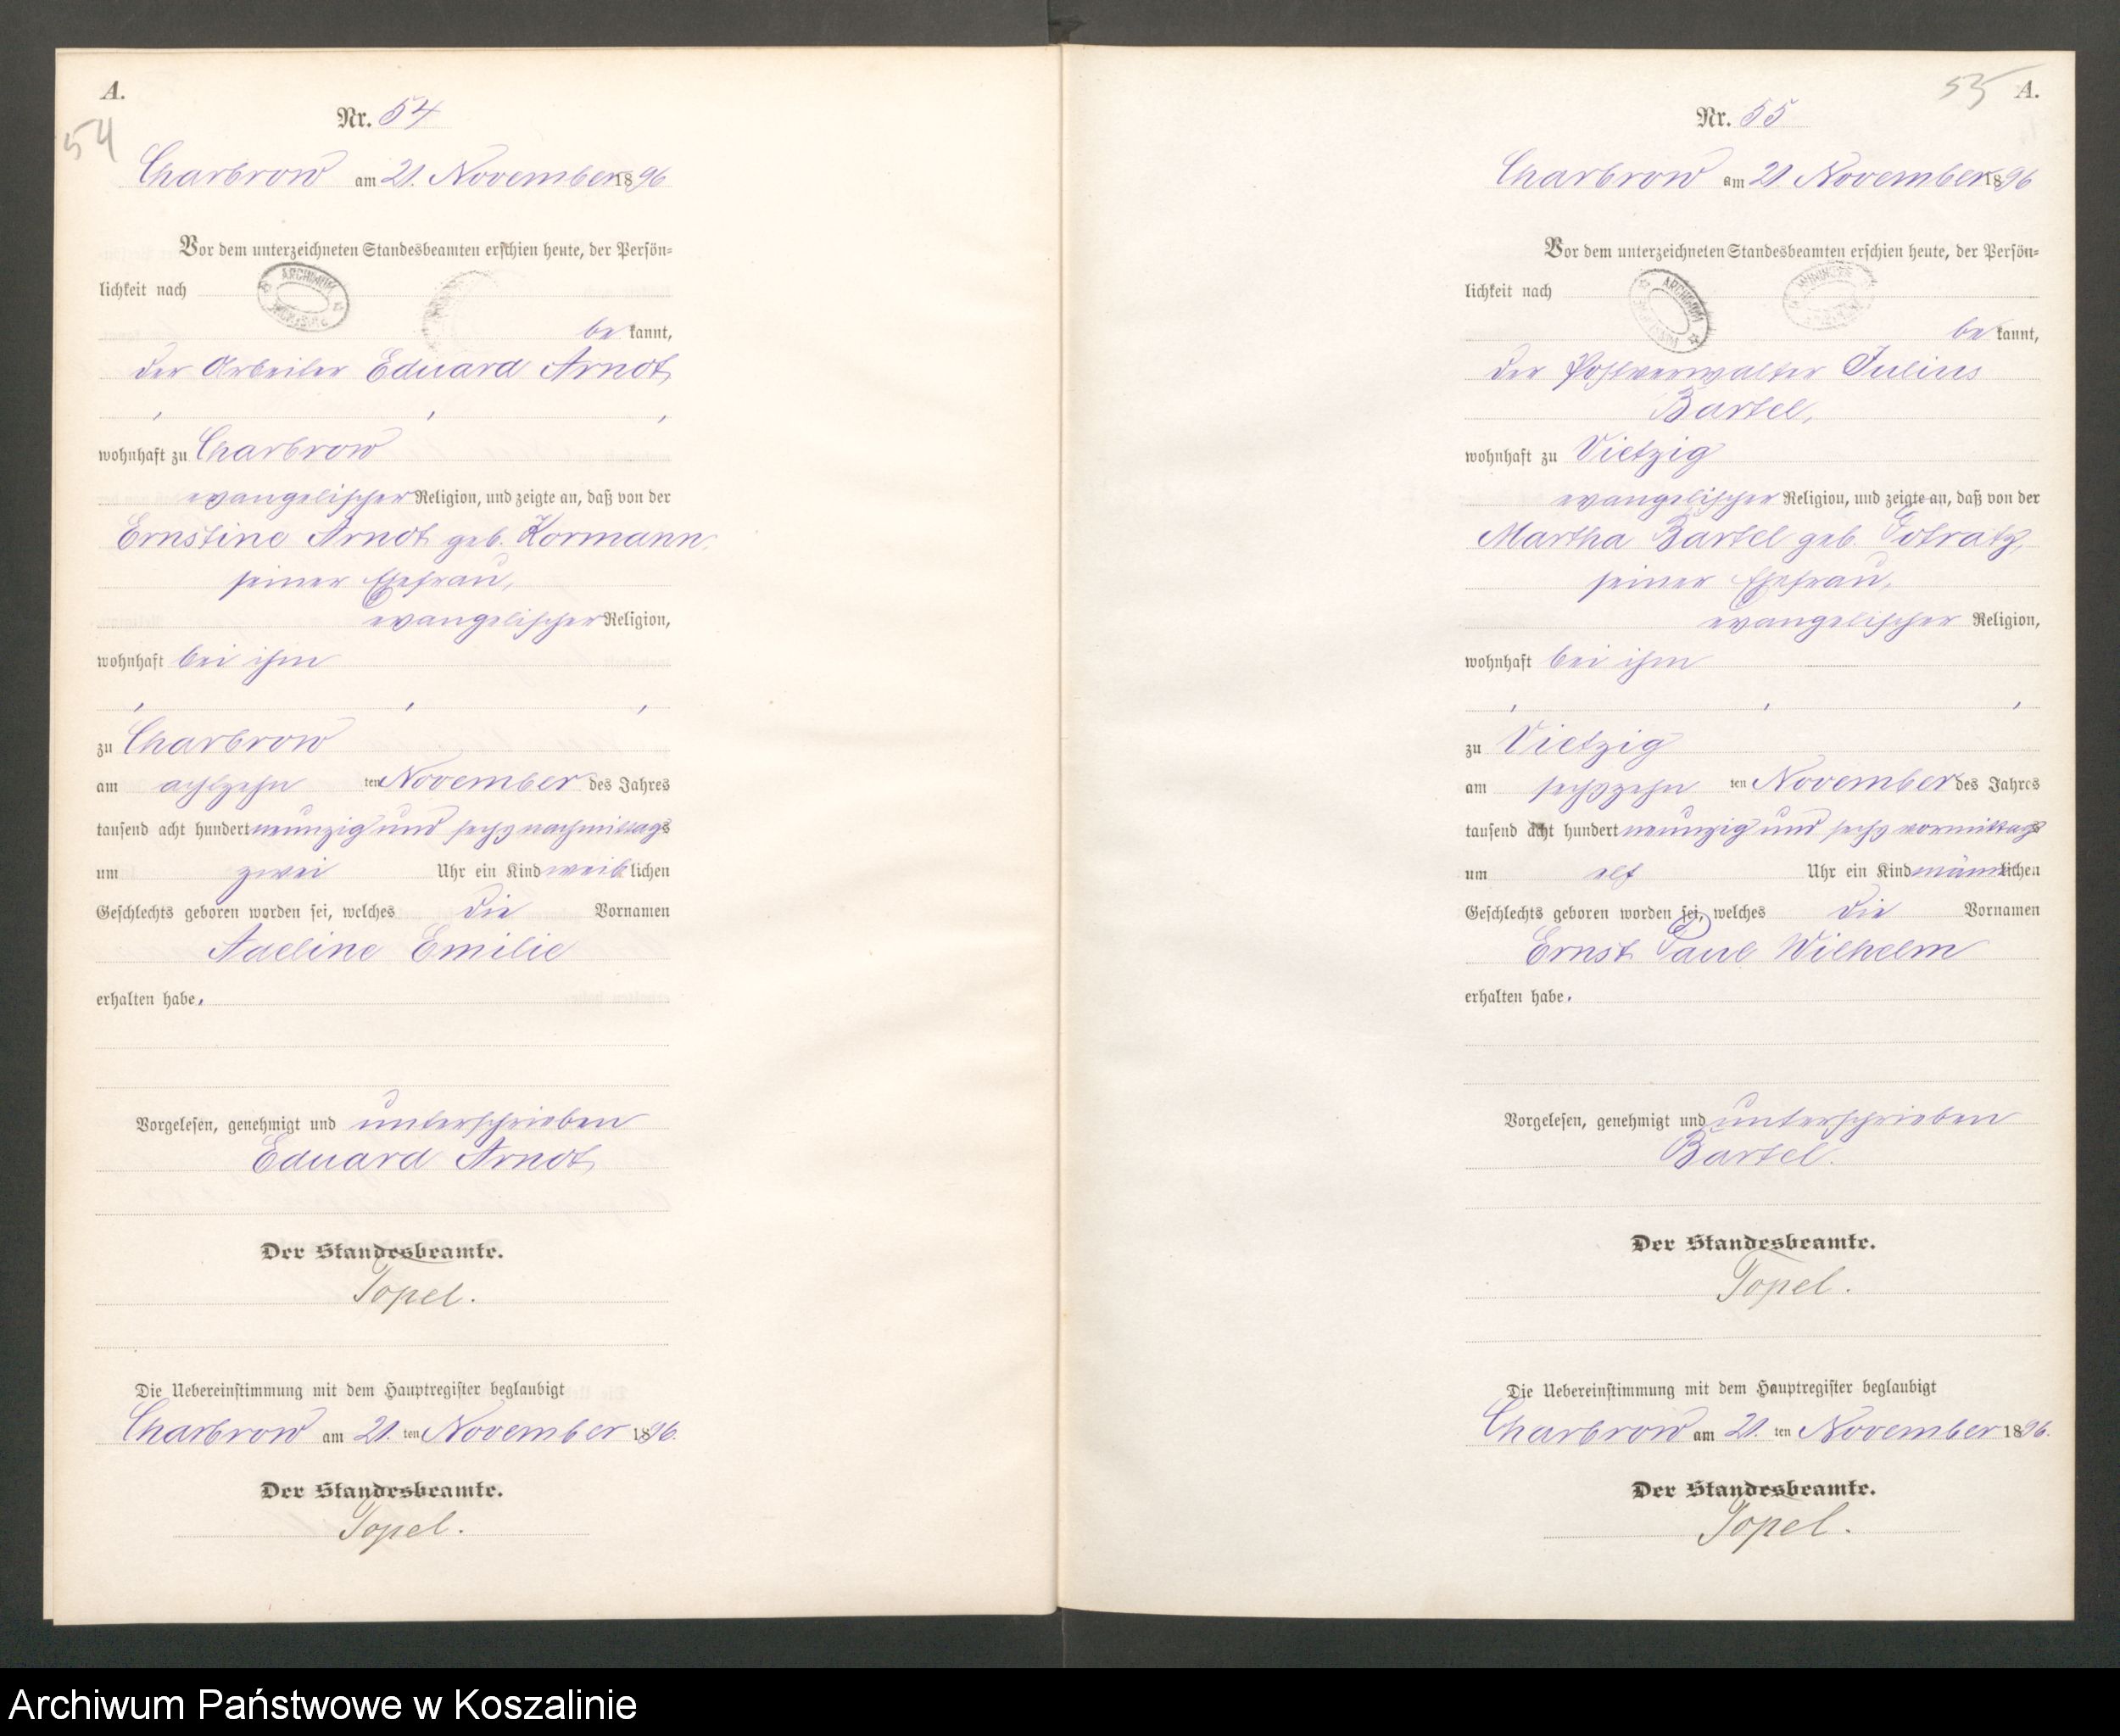 A.
54
Nr. 54
Charbrow am 21. November 1896
Vor dem unterzeichneten Standesbeamten erschien heute, der Persön-
lichkeit nach
ARCHIWUM
be kannt,
der Arbeiter Eduard Arndt,
wohnhaft zu Charbrow
evangelischer Religion, und zeigte an, daß von der
Ernstine Arndt geb. Kormann,
seiner Ehefrau,
evangelischer Religion,
wohnhaft bei ihm
zu Charbrow
am achtzehn ten November des Jahres
tausend acht hundert neunzig und sechs nachmittags
um zwei Uhr ein Kind weiblichen
Geschlechts geboren worden sei, welches die Vornamen
Adeline Emilie
erhalten habe.
Vorgelesen, genehmigt und unterschrieben
Eduard Arndt
Der Standesbeamte.
Topel.
Die Uebereinstimmung mit dem Hauptregister beglaubigt
Charbrow am 21. ten November 1896.
Der Standesbeamte.
Topel.
55 A.
Nr. 55
Charbrow am 21. November 1896
Vor dem unterzeichneten Standesbeamten erschien heute, der Persön-
lichkeit nach
ARCHIWUM
be kannt,
der Postverwalter Julius
Bartel,
wohnhaft zu Vietzig
evangelischer Religion, und zeigte an, daß von der
Martha Bartel geb. Potratz,
seiner Ehefrau,
evangelischer Religion,
wohnhaft bei ihm
zu Vietzig
am sechszehn ten November des Jahres
tausend acht hundert neunzig und sechs vormittags
um elf Uhr ein Kind männlichen
Geschlechts geboren worden sei, welches die Vornamen
Ernst Paul Wilhelm
erhalten habe.
Vorgelesen, genehmigt und unterschrieben
Bartel.
Der Standesbeamte.
Topel.
Die Uebereinstimmung mit dem Hauptregister beglaubigt
Charbrow am 21. ten November 1896.
Der Standesbeamte.
Topel.
Archiwum Państwowe w Koszalinie